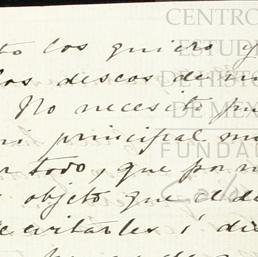 to los quiero y
los deseos de m
No necesito pu
mi principal mo
r todo, y que por m
objeto que el de
evitarles i dis
CENTRO
ESTUDI
DE HISTO
DE MEX
FUNDA